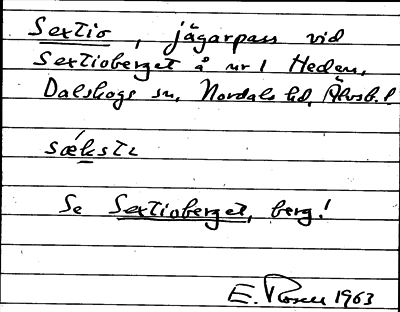 Sextio, jägarpass vid
Sextioberget å nr 1 Heden,
Dalskogs sn, Nordals hd, Älvsb. l
sækstı
Se Sextioberget, berg!
E. Rosell 1963